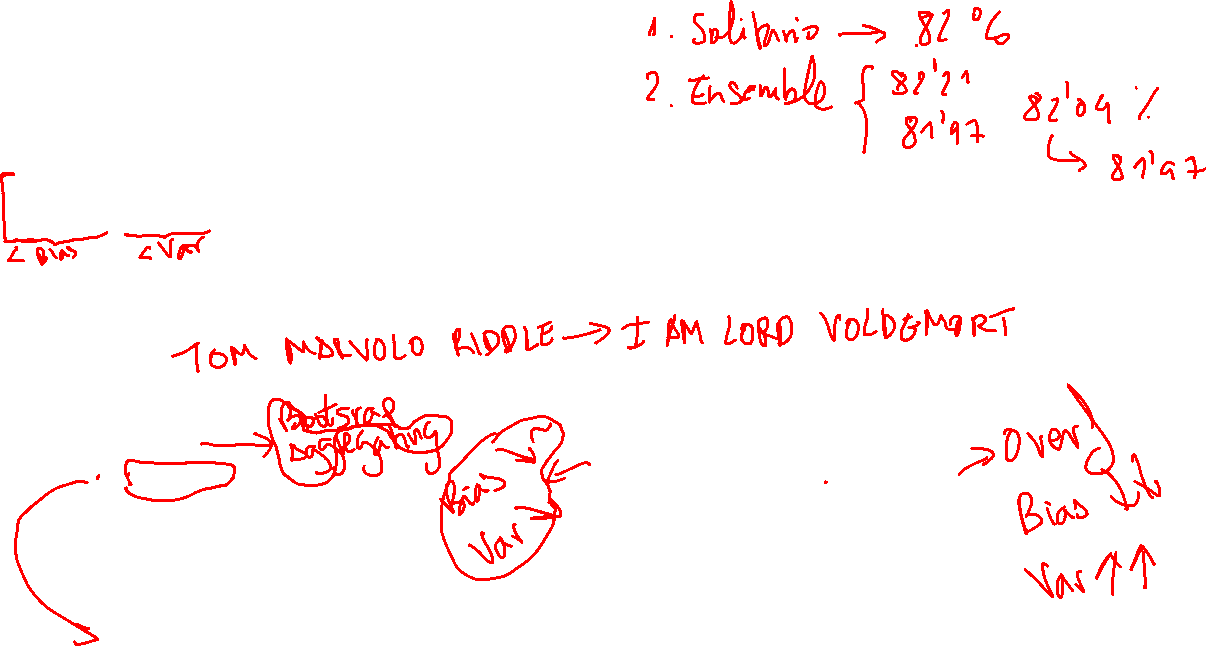 1. Solitario → 82 %
2. Ensemble { 82'21
81'97
82'04 %
↳ 81'97
< Bias
< Var
TOM MALVOLO RIDDLE → I AM LORD VOLDEMORT
Bootsrap
Aggregating
Bias
Var
→ Over
Bias ↓↓
Var ↑↑